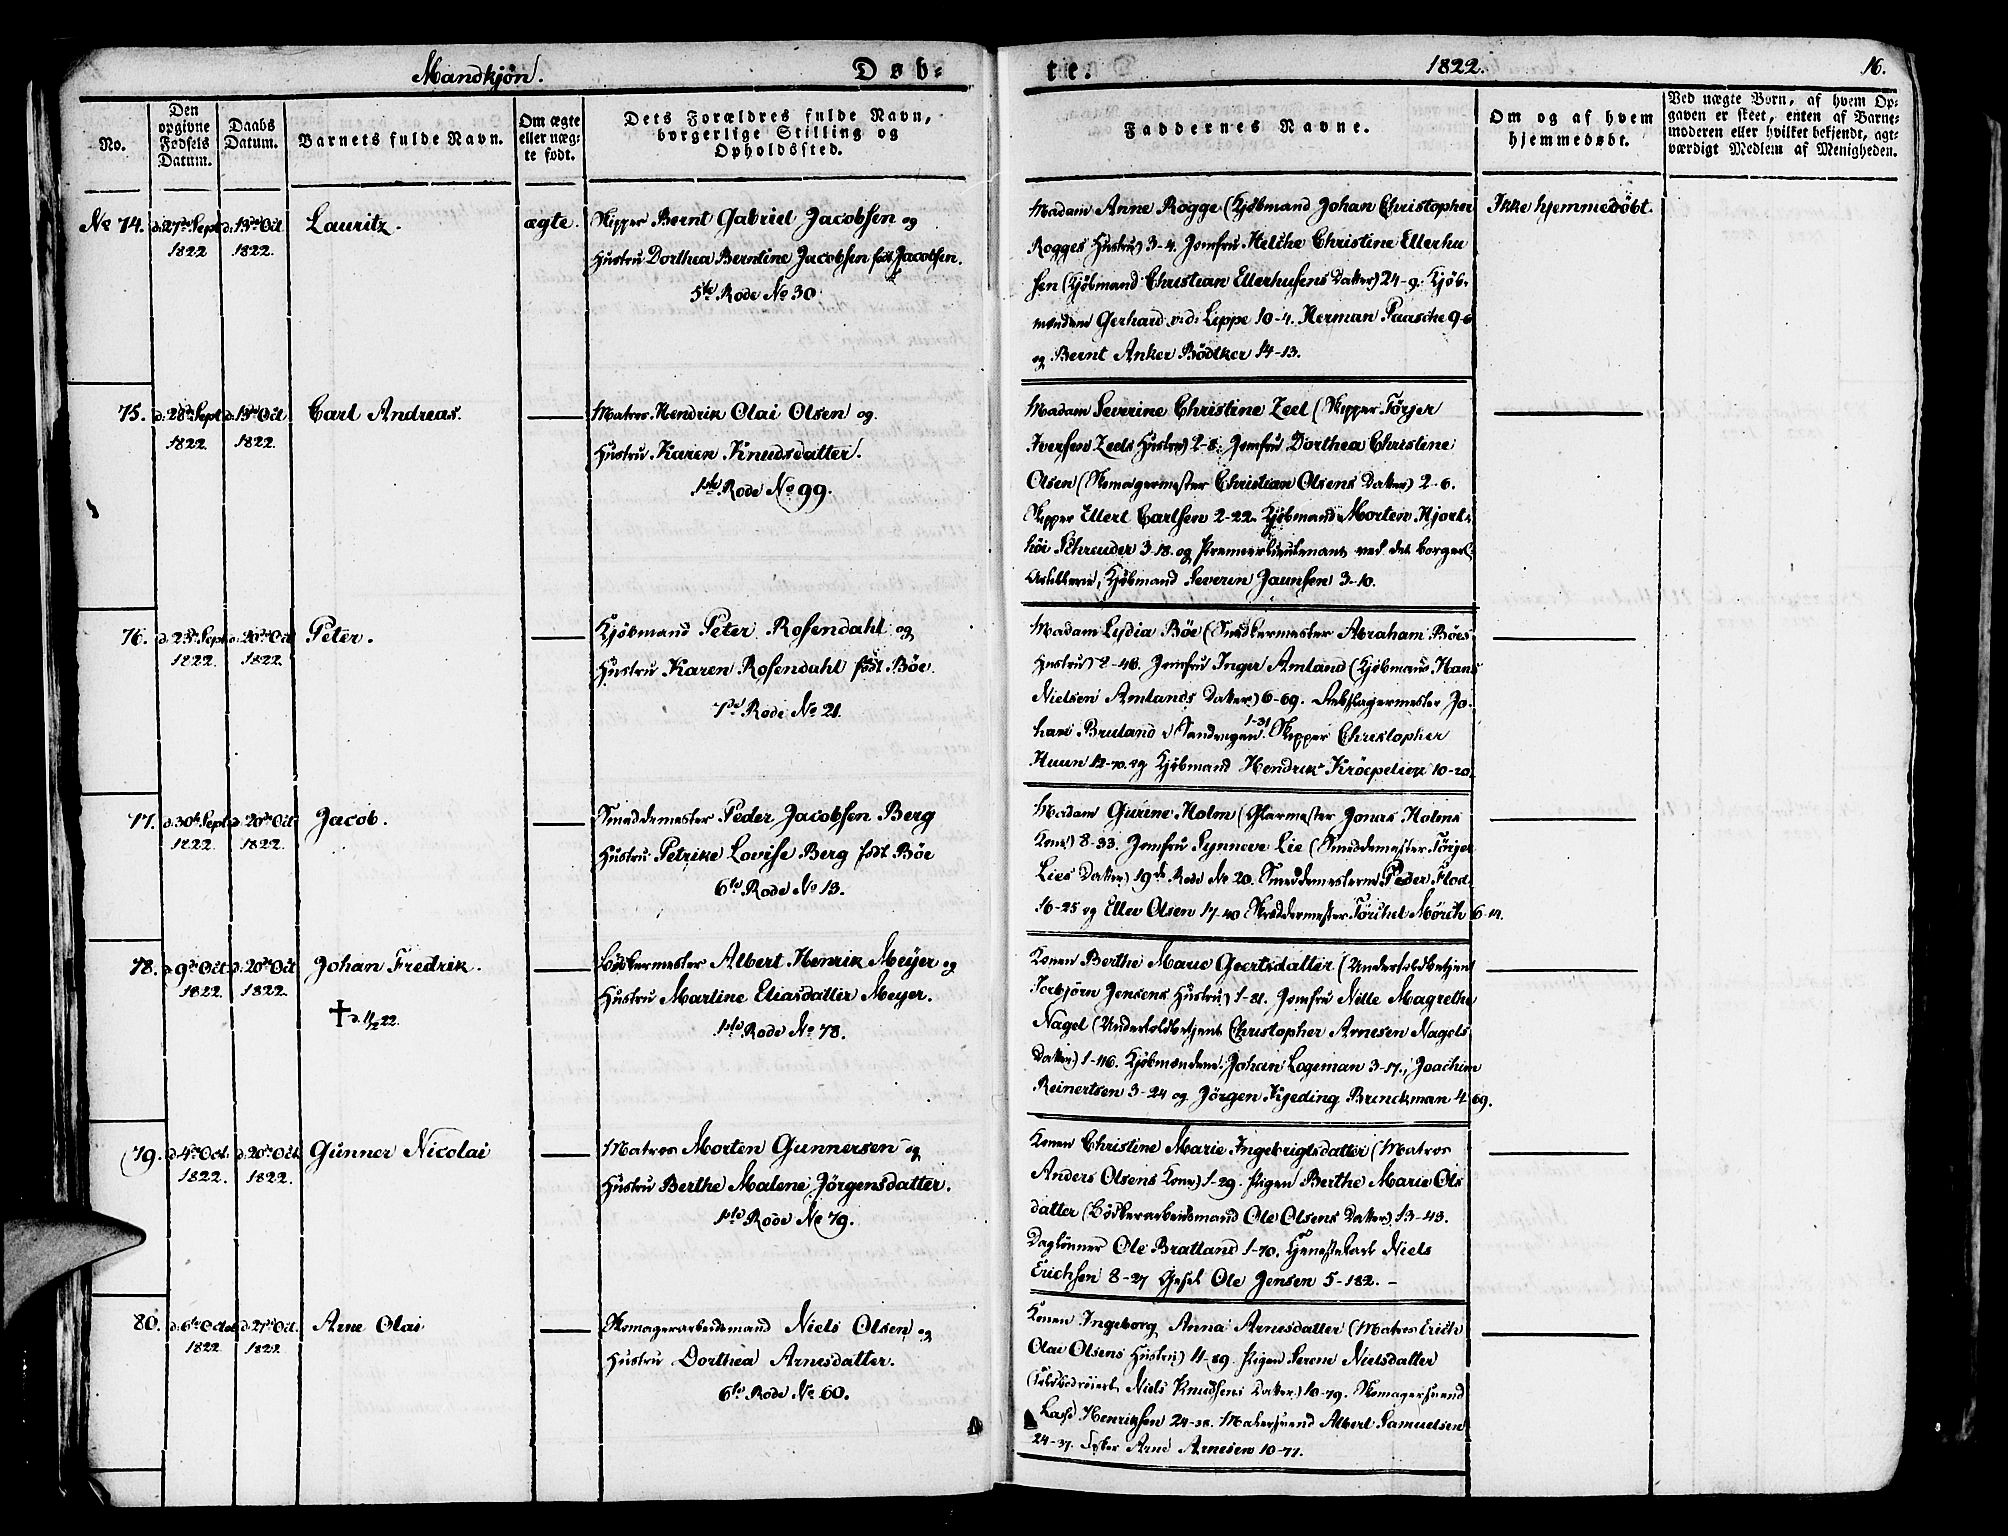 Mandkjøn.
Døb-
te.
1822.
16.
No.
Den opgivne Fødsels Datum.
Daabs Datum.
Barnets fulde Navn.
Om ægte eller næg- te født.
Dets Forældres fulde Navn, borgerlige Stilling og Opholdssted.
Faddernes Navne.
Om og af hvem hjemmedøbt.
Ved nægte Børn, af hvem Op- gaven er skeet, enten af Barne- moderen eller hvilket bekjendt, agt- værdigt Medlem af Menigheden.
No 74. d. 27de Sept 1822 d. 13de Oct 1822. Lauritz. ægte.
Skipper Bernt Gabriel Jacobsen og
Hustru Dorthea Berntine Jacobsen født Jacobsen.
5te Rode No 30
Madam Anne Rogge (Kjøbmand Johan Christopher
Rogges Hustru) 3-4. Jomfru Helche Christine Ellerhu
sen (Kjøbmand Christian Ellerhusens Datter) 24-9. Kjøb-
mændene Gerhard v.d. Lippe 10-4. Herman Paasche 9-6
og Bernt Anker Bödtker 14-13.
Ikke hjemmedöbt.
75. d. 28de Sept 1822 d. 13de Oct 1822. Carl Andreas.
Matros Hendrik Olai Olsen og
Hustru Karen Knudsdatter.
1ste Rode No 99.
Madam Severine Christine Zeel (Skipper Törjer
Iversen Zeels Hustru) 2-8. Jomfru Dorthea Christine
Olsen (Skomagermester Christian Olsens Datter) 2-6.
Skipper Ellert Carlsen 2-22. Kjöbmand Morten Hjort-
höi Schreuder 3-18. og Premierlieutenant ved det borgerl.
Artillerie, Kjöbmand Severin Jaunsen 3-10.
76. d. 23de Sept 1822. d. 20de Oct 1822. Peter.
Kjöbmand Peter Rosendahl og
Hustru Karen Rosendahl födt Böe.
7de Rode No 21.
Madam Lydia Böe (Snedkermester Abraham Böes
Hustru) 8-48. Jomfru Inger Amland (Kjöbmand Hans
Nielsen Amlands Datter) 6-69. Rebslagermester Jo-
han Bruland i Sandvigen 1-31. Skipper Christopher
Huun 12-70. og Kjöbmand Hendrik Kröepelien 10-20.
77. d. 30te Sept 1822. d. 20de Oct 1822. Jacob.
Smeddemester Peder Jacobsen Berg
Hustru Petrike Lovise Berg födt Böe
6te Rode No 13.
Madam Gurine Holm (Glarmester Jonas Holms
Kone) 8-33. Jomfru Synneve Lie (Smeddemester Törjer
Lies Datter) 19de Rode No 20. Smeddemesterne Peder Flod
16-25 og Ellev Olsen 17-40 Skræddermester Törchel Mörch 6-14.
78. d. 9de Oct 1822. d. 20de Oct 1822. Johan Fredrik.
† d. 11/12 22.
Bödkermester Albert Henrik Meyer og
Hustru Martine Eliasdatter Meyer.
1ste Rode No 78.
Konen Berthe Marie Geertsdatter (Undertoldbetjent
Torbjörn Jensens Hustru) 1-81. Jomfru Nille Magrethe
Nagel (Undertoldbetjent Christopher Arnesen Nagels
Datter) 1-116. Kjöbmændene Johan Logeman 3-17., Joachim
Reinertsen 3-24 og Jörgen Kjeding Brinckman 4-69.
79. d. 4de Oct. 1822. d. 20de Oct. 1822. Gunner Nicolai
Matros Morten Gunnersen og
Hustru Berthe Malene Jörgensdatter.
1ste Rode No 79.
Konen Christine Marie Ingebrigtsdatter (Matros
Anders Olsens Kone) 1-29. Pigen Berthe Marie Ols
datter (Bödkerarbeidsmand Ole Olsens Datter). 13-43.
Daglönner Ole Bratland 1-70. Tjenestekarl Niels
Erichsen 8-27 Gesel Ole Jensen 5-182. -
80. d. 6te Oct 1822 d. 27de Oct. 1822. Arne Olai
Skomagerarbeidsmand Niels Olsen og
Hustru Dorthea Arnesdatter.
6te Rode No 60.
Konen Ingeborg Anna Arnesdatter (Matros Erich
Olai Olsens Hustru) 11-89. Pigen Serene Nielsdatter
Niels Knudsens Datter) 10-79. Skomagersvend
Lasse Henriksen 24-38. Malersvend Albert Samuelsen
24-37. Arne Arnesen 10-77.